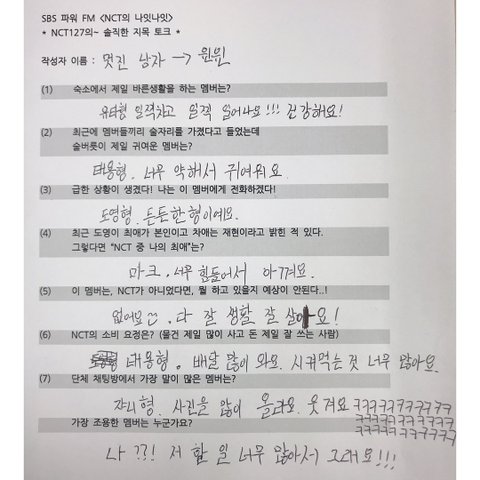 SBS 파워 FM <NCT의 나잇나잇>
* NCT127의~ 솔직한 지목 토크 *
작성자 이름 : 멋진 남자 → 윈윈
(1) 숙소에서 제일 바른생활을 하는 멤버는?
유타형 일찍자고 일찍 일어나요!!! 건강해요!
(2) 최근에 멤버들끼리 술자리를 가졌다고 들었는데
술버릇이 제일 귀여운 멤버는?
태용형. 너무 약해서 귀여워요.
(3) 급한 상황이 생겼다! 나는 이 멤버에게 전화하겠다!
도영형. 든든한 형이에요.
(4) 최근 도영이 최애가 본인이고 차애는 재현이라고 밝힌 적 있다.
그렇다면 "NCT 중 나의 최애"는?
마크. 너무 힘들어서 아껴요.
(5) 이 멤버는, NCT가 아니었다면, 뭘 하고 있을지 예상이 안된다..!
없어요 다 잘 생활 잘 살아요!
(6) NCT의 소비 요정은? (물건 제일 많이 사고 돈 제일 잘 쓰는 사람)
태용형. 배달 많이 와요. 시켜먹는 것 너무 많아요.
(7) 단체 채팅방에서 가장 말이 많은 멤버는?
쟈니형. 사진을 많이 올려요. 웃겨요 ㅋㅋㅋㅋㅋㅋㅋㅋ
ㅋㅋㅋㅋㅋㅋㅋㅋ
ㅋㅋㅋㅋㅋㅋㅋㅋ
가장 조용한 멤버는 누군가요?
나??! 저 할 일 너무 많아서 그래요!!!